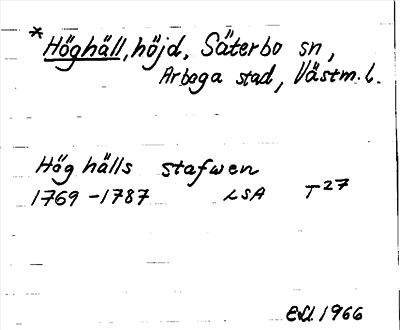 *Höghäll, höjd, Säterbo sn,
Arboga stad, Västm. l.
Hög hälls stafwen
1769 - 1787 LSA T 27
1966